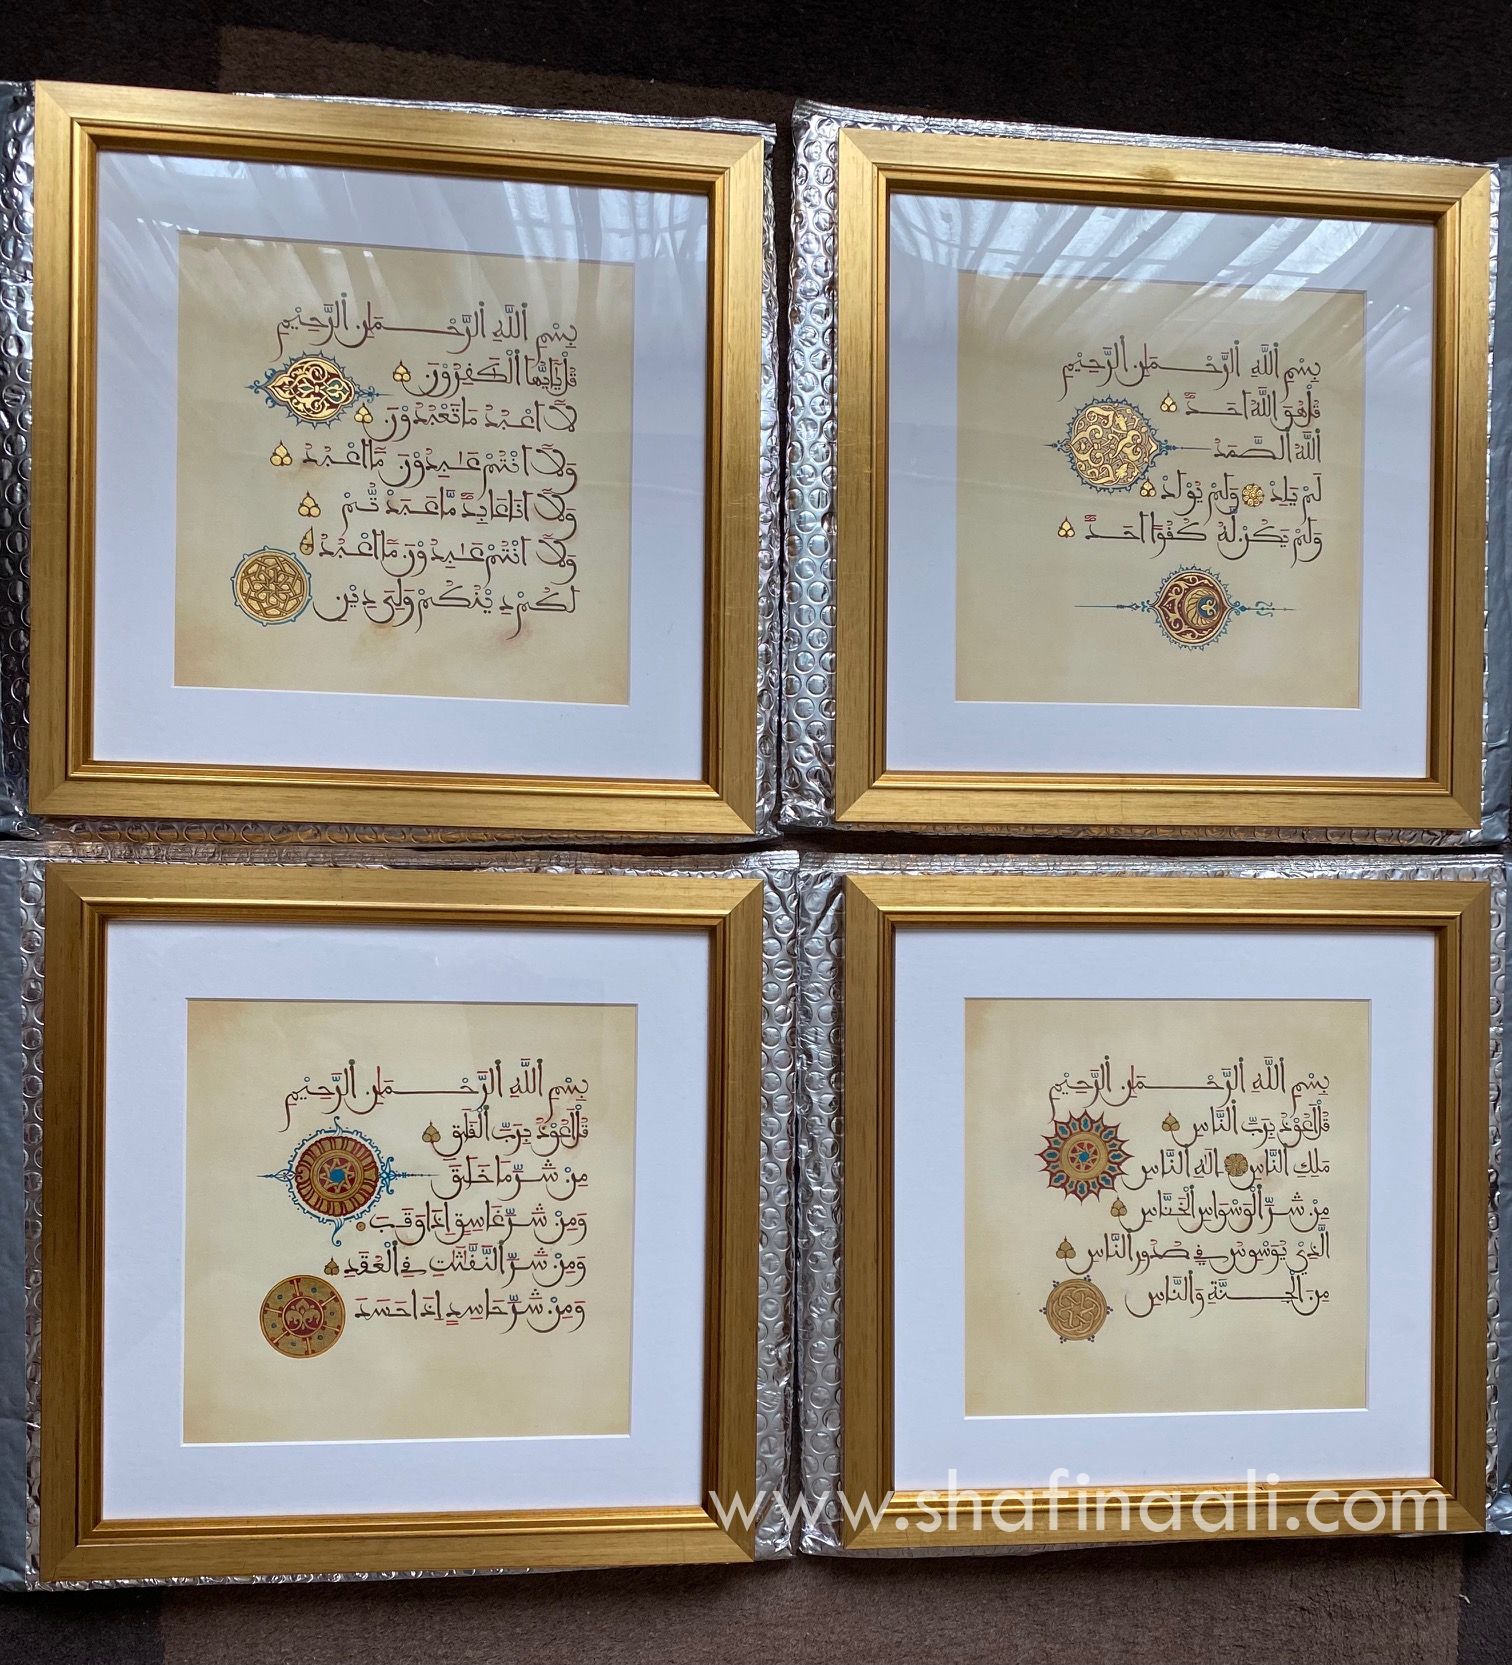 بِسْمِ اللَّهِ الرَّحْمَٰنِ الرَّحِيْمِ
قُلْ يَاَيُّهَا الْكَٰفِرُوْنَ
لَآ اَعْبُدُ مَا تَعْبُدُوْنَ
وَلَآ اَنْتُمْ عَٰبِدُوْنَ مَآ اَعْبُدُ
وَلَآ اَنَا عَابِدٌ مَّا عَبَدْتُّمْ
وَلَآ اَنْتُمْ عَٰبِدُوْنَ مَآ اَعْبُدُ
لَكُمْ دِيْنُكُمْ وَلِيَ دِيْنِ
بِسْمِ اللَّهِ الرَّحْمَٰنِ الرَّحِيْمِ
قُلْ هُوَ اللَّهُ اَحَدٌ
اَللَّهُ الصَّمَدُ
لَمْ يَلِدْ وَلَمْ يُوْلَدْ
وَلَمْ يَكُنْ لَّهُ كُفُوًا اَحَدٌ
بِسْمِ اللَّهِ الرَّحْمَٰنِ الرَّحِيْمِ
قُلْ اَعُوْذُ بِرَبِّ الْفَلَقِ
مِنْ شَرِّ مَا خَلَقَ
وَمِنْ شَرِّ غَاسِقٍ اِذَا وَقَبَ
وَمِنْ شَرِّ النَّفَّٰثَٰتِ فِي الْعُقَدِ
وَمِنْ شَرِّ حَاسِدٍ اِذَا حَسَدَ
بِسْمِ اللَّهِ الرَّحْمَٰنِ الرَّحِيْمِ
قُلْ اَعُوْذُ بِرَبِّ النَّاسِ
مَلِكِ النَّاسِ اِلَٰهِ النَّاسِ
مِنْ شَرِّ الْوَسْوَاسِ الْخَنَّاسِ
الَّذِيْ يُوَسْوِسُ فِيْ صُدُوْرِ النَّاسِ
مِنَ الْجِنَّةِ وَالنَّاسِ
www.shafinaali.com